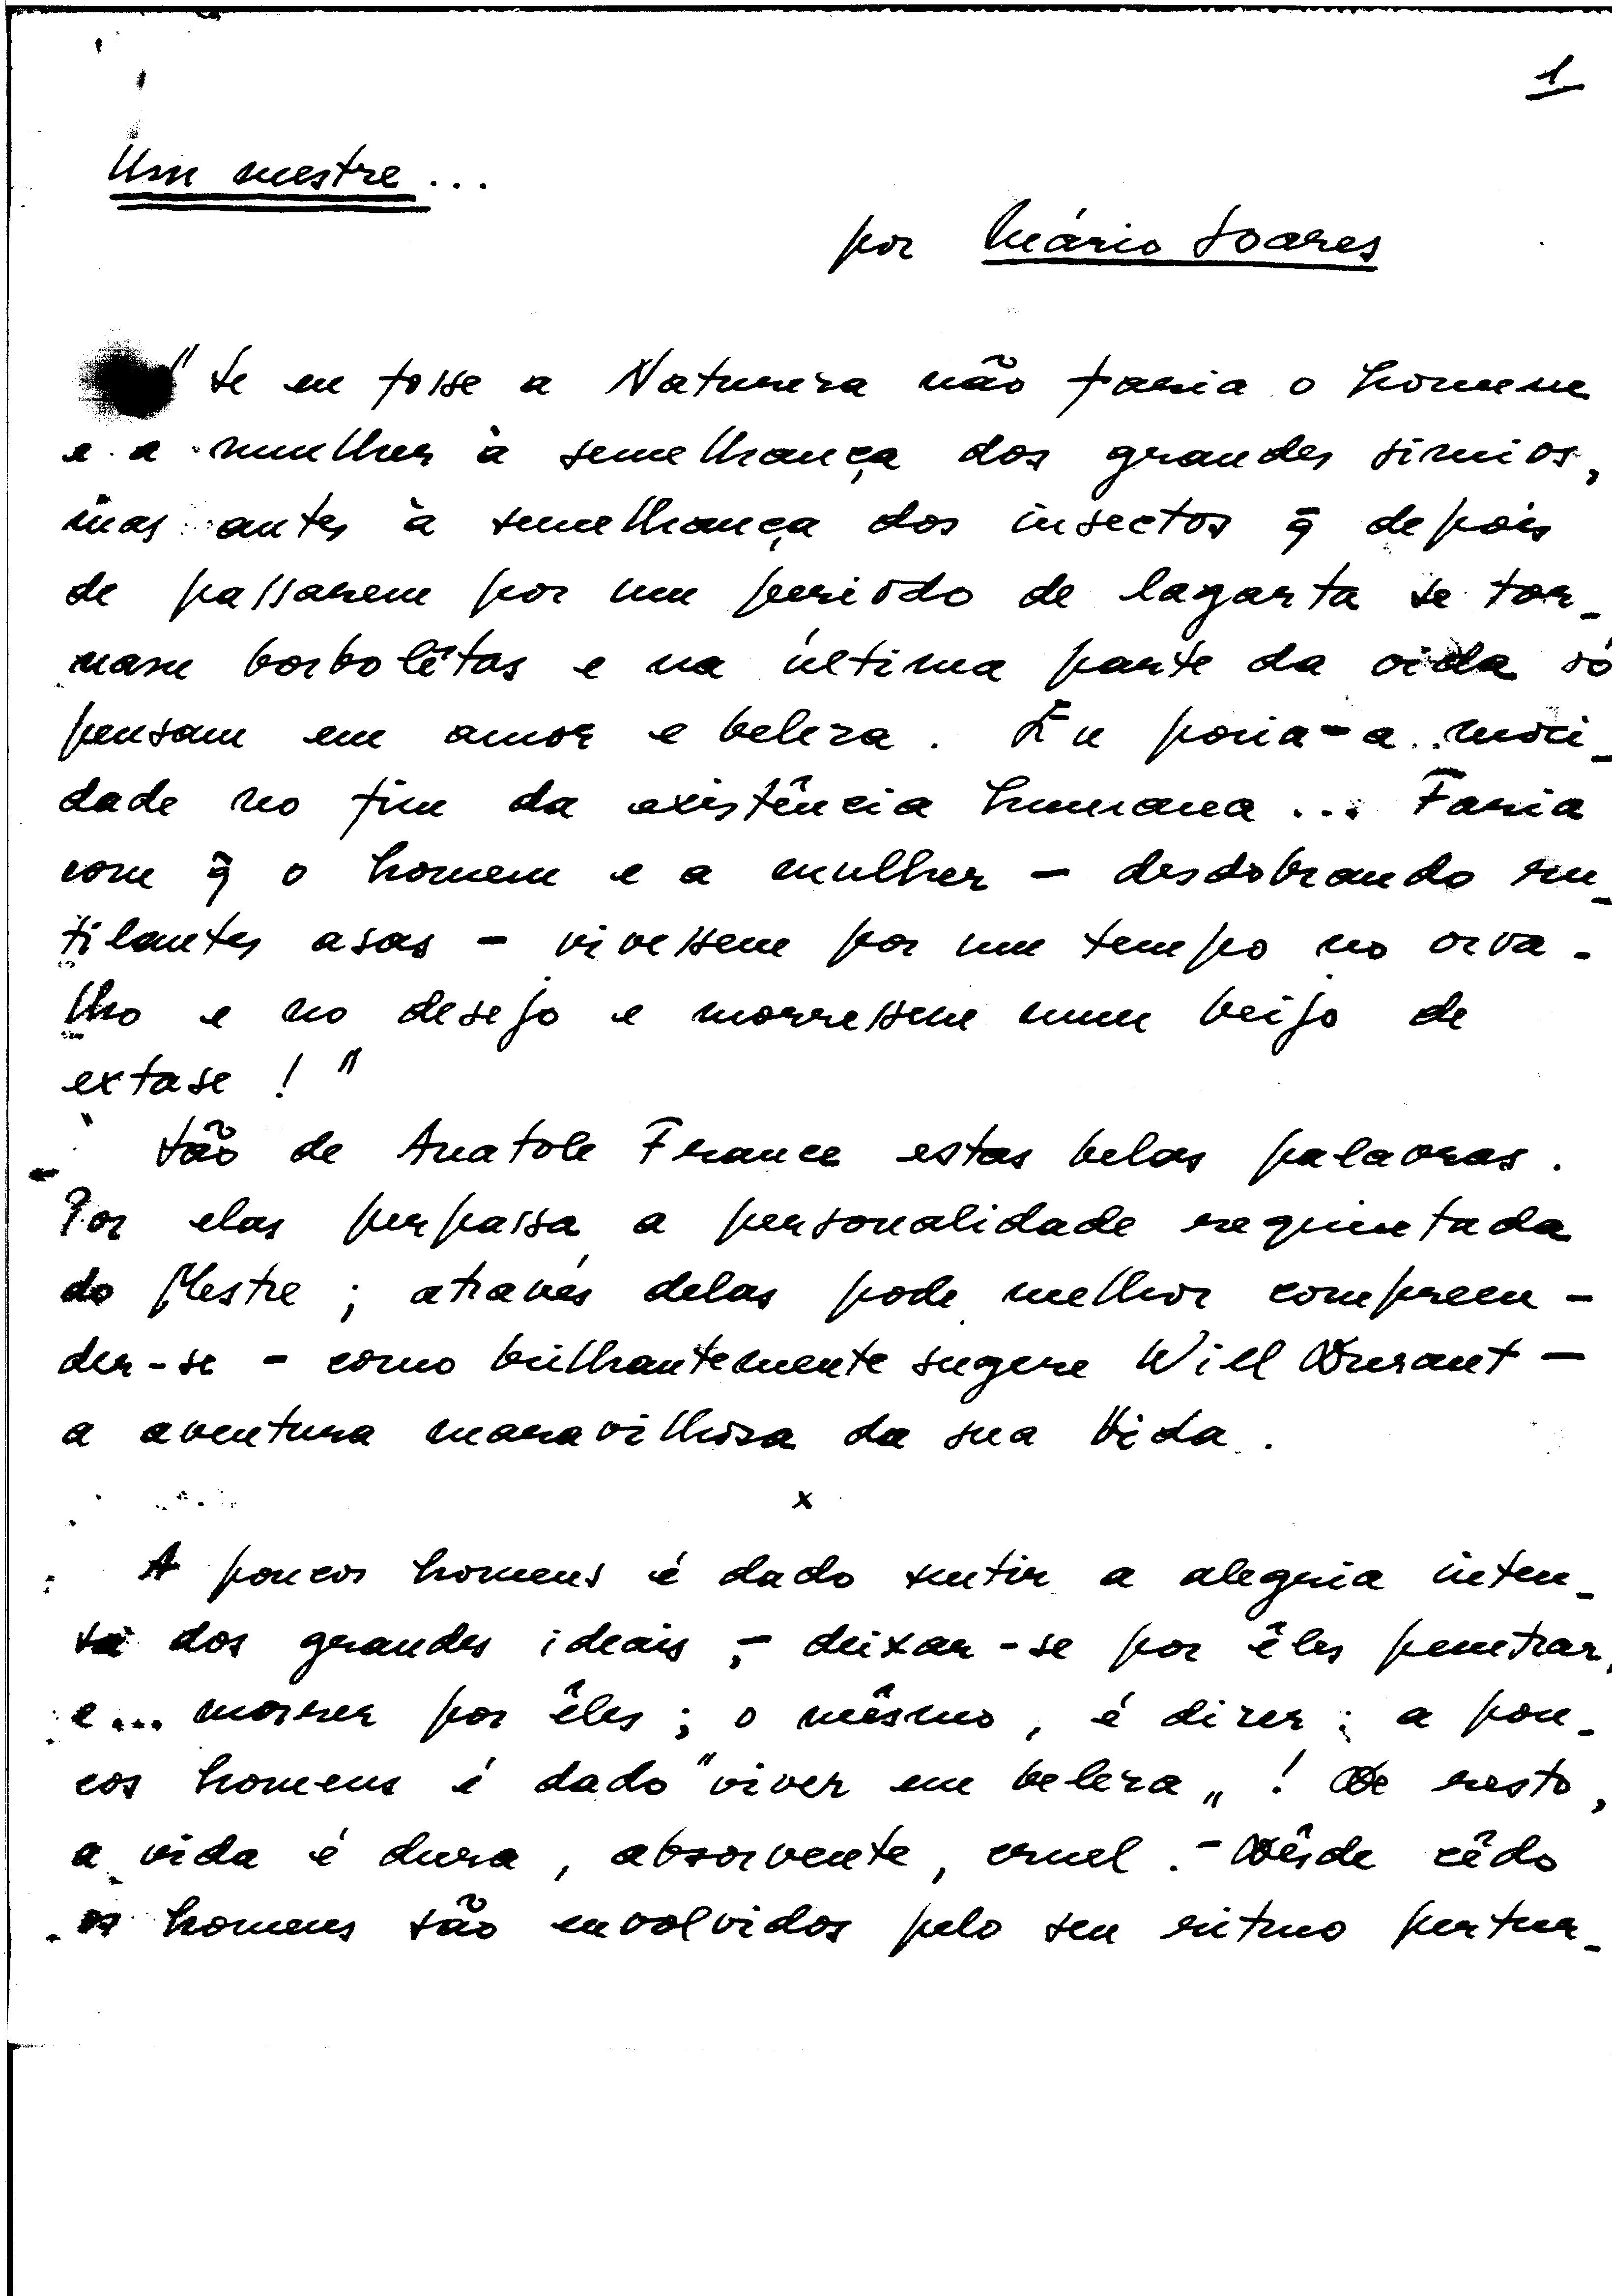 1
Um mestre...
por Mário Soares
"Se eu fosse a Natureza não faria o homem
e a mulher à semelhança dos grandes simios,
mas antes à semelhança dos insectos q̃ depois
de passarem por um periodo de lagarta se tor-
nam borbolêtas e na última parte da vida só
pensam em amor e beleza. Eu poria-a moci-
dade no fim da existência humana... Faria
com q̃ o homem e a mulher - desdobrando ru-
tilantes asas - vivessem por um tempo no orva-
lho e no desejo e morressem num beijo de
extase!"
São de Anatole France estas belas palavras.
Por elas perpassa a personalidade requintada
do Mestre; através delas pode melhor compreen-
der-se - como brilhantemente sugere Will Durant -
a aventura maravilhosa da sua Vida.
x
A poucos homens é dado sentir a alegria inten-
sa dos grandes ideais, - deixar-se por êles penetrar,
e... morrer por êles; o mêsmo, é dizer: a pou-
cos homens é dado "viver em beleza"! De resto,
a vida é dura, absorvente, cruel. - Dêsde cêdo
os homens são envolvidos pelo seu ritmo pertur-